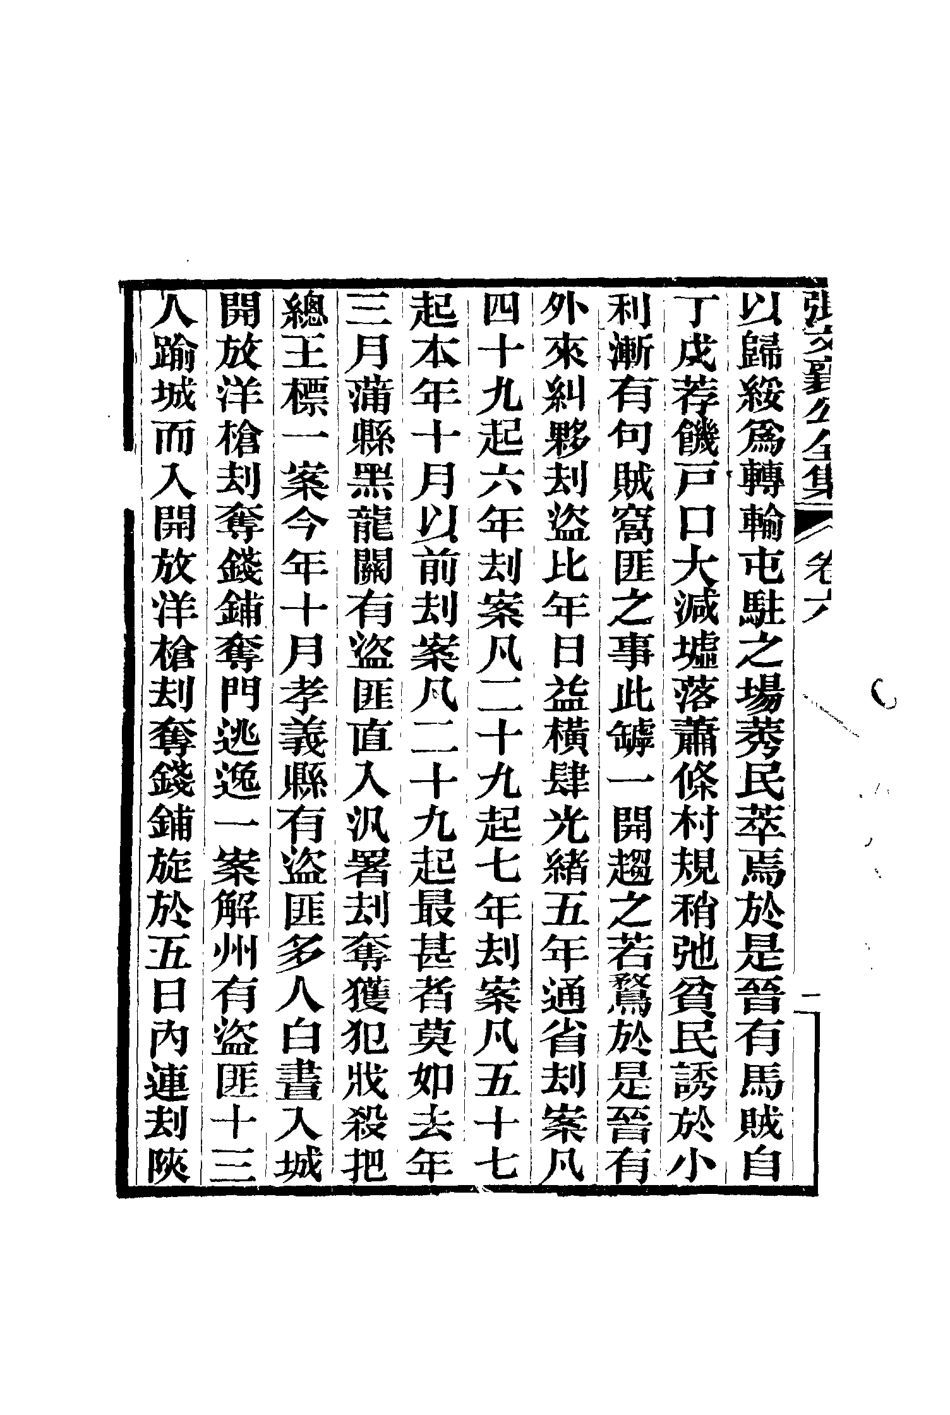 張文襄公全集 卷六 二
以歸綏爲轉輸屯駐之場莠民萃焉於是晉有馬賊自
丁戊荐饑戸口大減墟落蕭條村規稍弛貧民誘於小
利漸有句賊窩匪之事此罅一開趨之若鶩於是晉有
外來糾夥刦盜比年日益橫肆光緒五年通省刦案凡
四十九起六年刦案凡二十九起七年刦案凡五十七
起本年十月以前刦案凡二十九起最甚者莫如去年
三月蒲縣黑龍關有盜匪直入汛署刦奪獲犯戕殺把
總王標一案今年十月孝義縣有盜匪多人白晝入城
開放洋槍刦奪錢鋪奪門逃逸一案解州有盜匪十三
人踰城而入開放洋槍刦奪錢鋪旋於五日內連刦陝